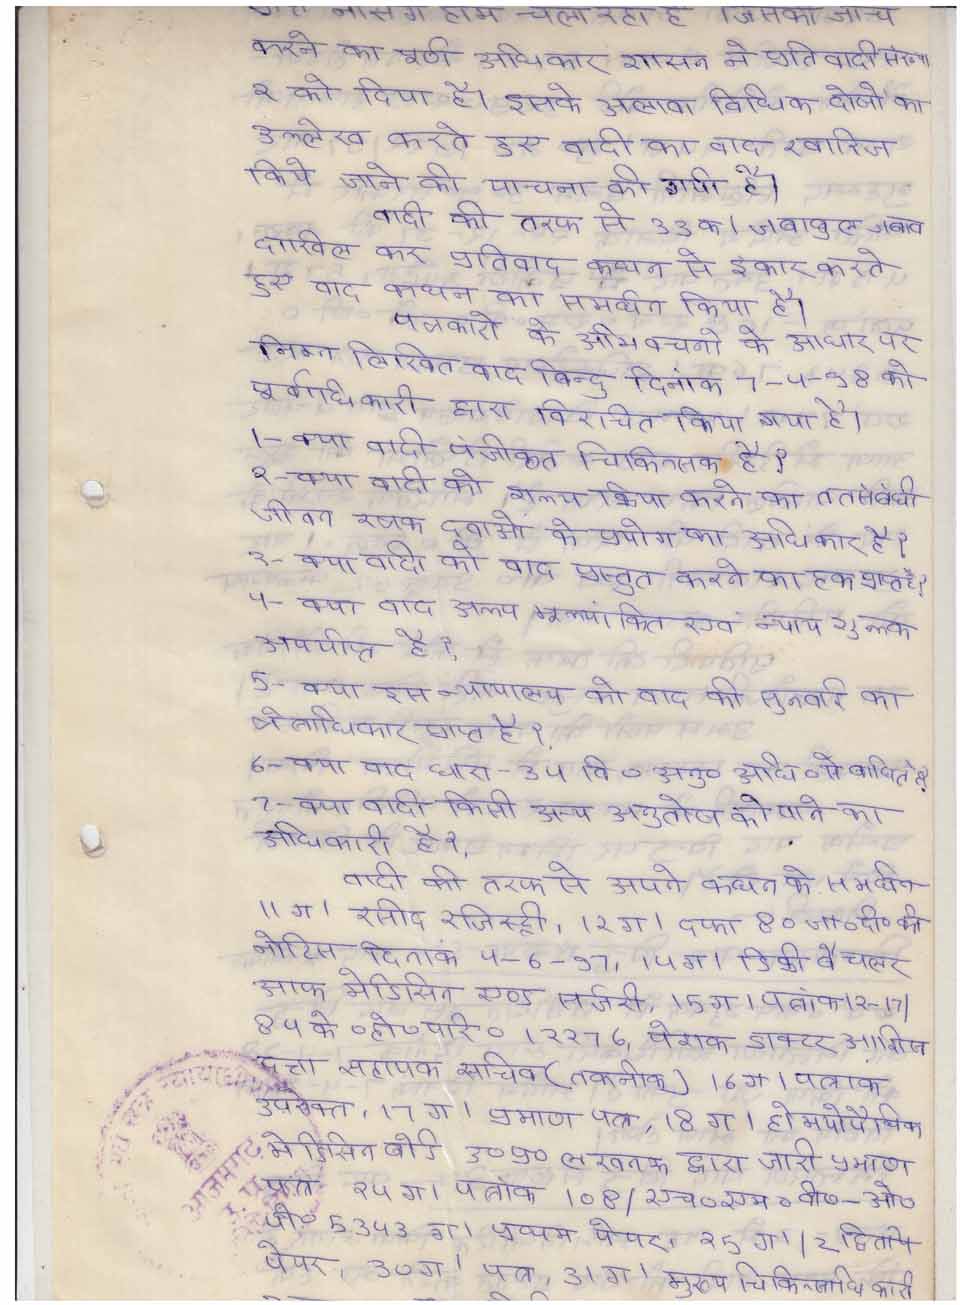 नर्सिंग होम चला रहा है जिसकी जांच
करने का पूर्ण अधिकार शासन ने प्रतिवादी संख्या
२ को दिया है। इसके अलावा विधिक दोषों का
उल्लेख करते हुए वादी का वाद खारिज
किये जाने की याचना की गयी है।
वादी की तरफ से ३३क। जवाबुल जवाब
दाखिल कर प्रतिवाद कथन से इंकार करते
हुए वाद कथन का समर्थन किया है।
पक्षकारों के अभिवचनों के आधार पर
निम्न लिखित वाद बिन्दु दिनांक 7-4-98 को
पूर्वाधिकारी द्वारा विरचित किया गया है।
1- क्या वादी पंजीकृत चिकित्सक है?
२- क्या वादी को शल्य क्रिया करने का ततसंबंधी
जीवन रक्षक दवाओ के प्रयोग का अधिकार है?
३- क्या वादी को वाद प्रस्तुत करने का हक प्राप्त है?
4- क्या वाद अल्प मूल्यांकित एवं न्याय शुल्क
अपर्याप्त है?
5- क्या इस न्यायालय को वाद की सुनवाई का
क्षेत्राधिकार प्राप्त है?
6- क्या वाद धारा-३४ वि० अनु० अधि० से बाधित है?
7- क्या वादी किसी अन्य अनुतोष को पाने का
अधिकारी है?
वादी की तरफ से अपने कथन के समर्थन
11ग। रसीद रजिस्ट्री, 1२ग। दफा 8० जा०दी० की
नोटिस दिनांक 4-6-97, 14ग। डिग्री बैचलर
आफ मेडिसिन एण्ड सर्जरी, 15ग। पत्रांक 1२-17/
84 के०हो०परि० 1२२76, प्रेषक डाक्टर
दत्ता सहायक सचिव (तकनीक) 16ग। पत्रांक
उपरोक्त, 17ग। प्रमाण पत्र, 18ग। होमयोपैथिक
मेडिसिन बोर्ड उ०प्र० लखनऊ द्वारा जारी प्रमाण
पत्र २4ग। पत्रांक 108/एच०एम०बी०-ओ०
पी० 5३4३ ग। प्रथम पेपर, २5ग।/२ द्वितीय
पेपर, ३०ग। पत्र, ३1ग। मुख्य चिकित्साधिकारी